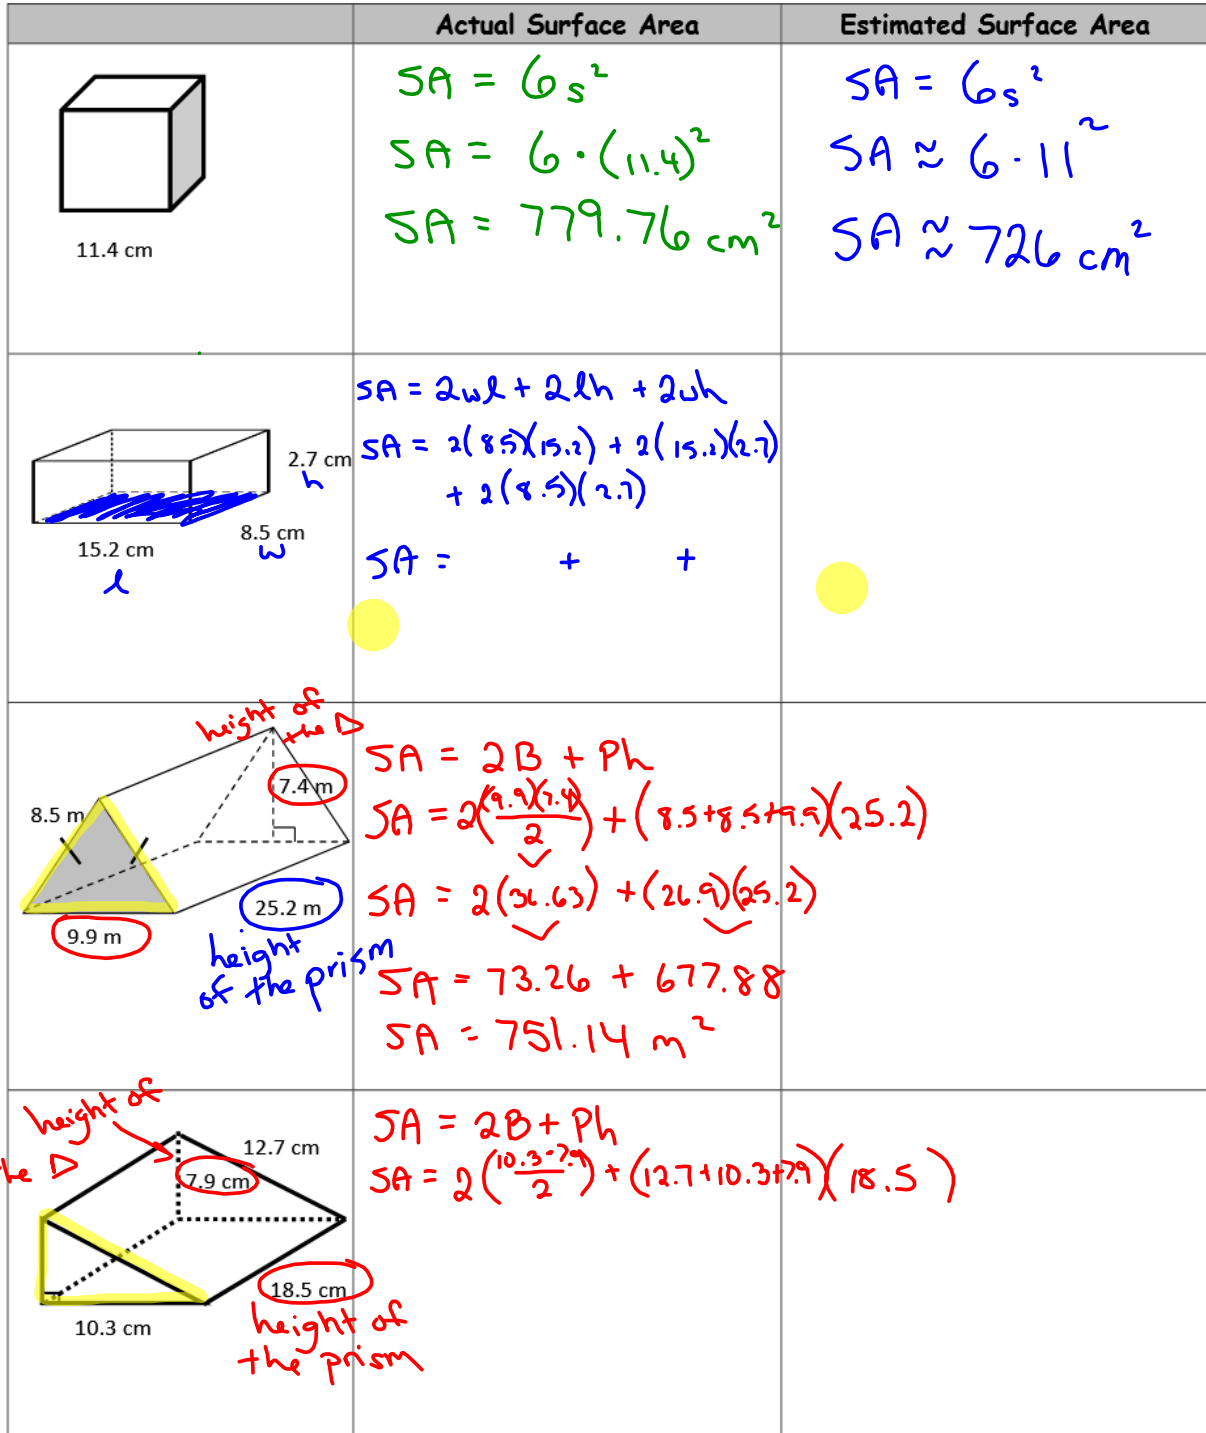 Actual Surface Area
Estimated Surface Area
11.4 cm
SA = 6s²
SA = 6 · (11.4)²
SA = 779.76 cm²
SA = 6s²
SA ≈ 6 · 11²
SA ≈ 726 cm²
2.7 cm
h
8.5 cm
w
15.2 cm
l
SA = 2wl + 2lh + 2wh
SA = 2(8.5)(15.2) + 2(15.2)(2.7)
+ 2(8.5)(2.7)
SA = + +
height of
the △
7.4 m
8.5 m
25.2 m
9.9 m
height
of the prism
SA = 2B + Ph
SA = 2((9.9)(7.4)/2) + (8.5+8.5+9.9)(25.2)
SA = 2(36.63) + (26.9)(25.2)
SA = 73.26 + 677.88
SA = 751.14 m²
height of
the △
12.7 cm
7.9 cm
18.5 cm
10.3 cm
height of
the prism
SA = 2B + Ph
SA = 2(10.3·7.9/2) + (12.7+10.3+7.9)(18.5 )